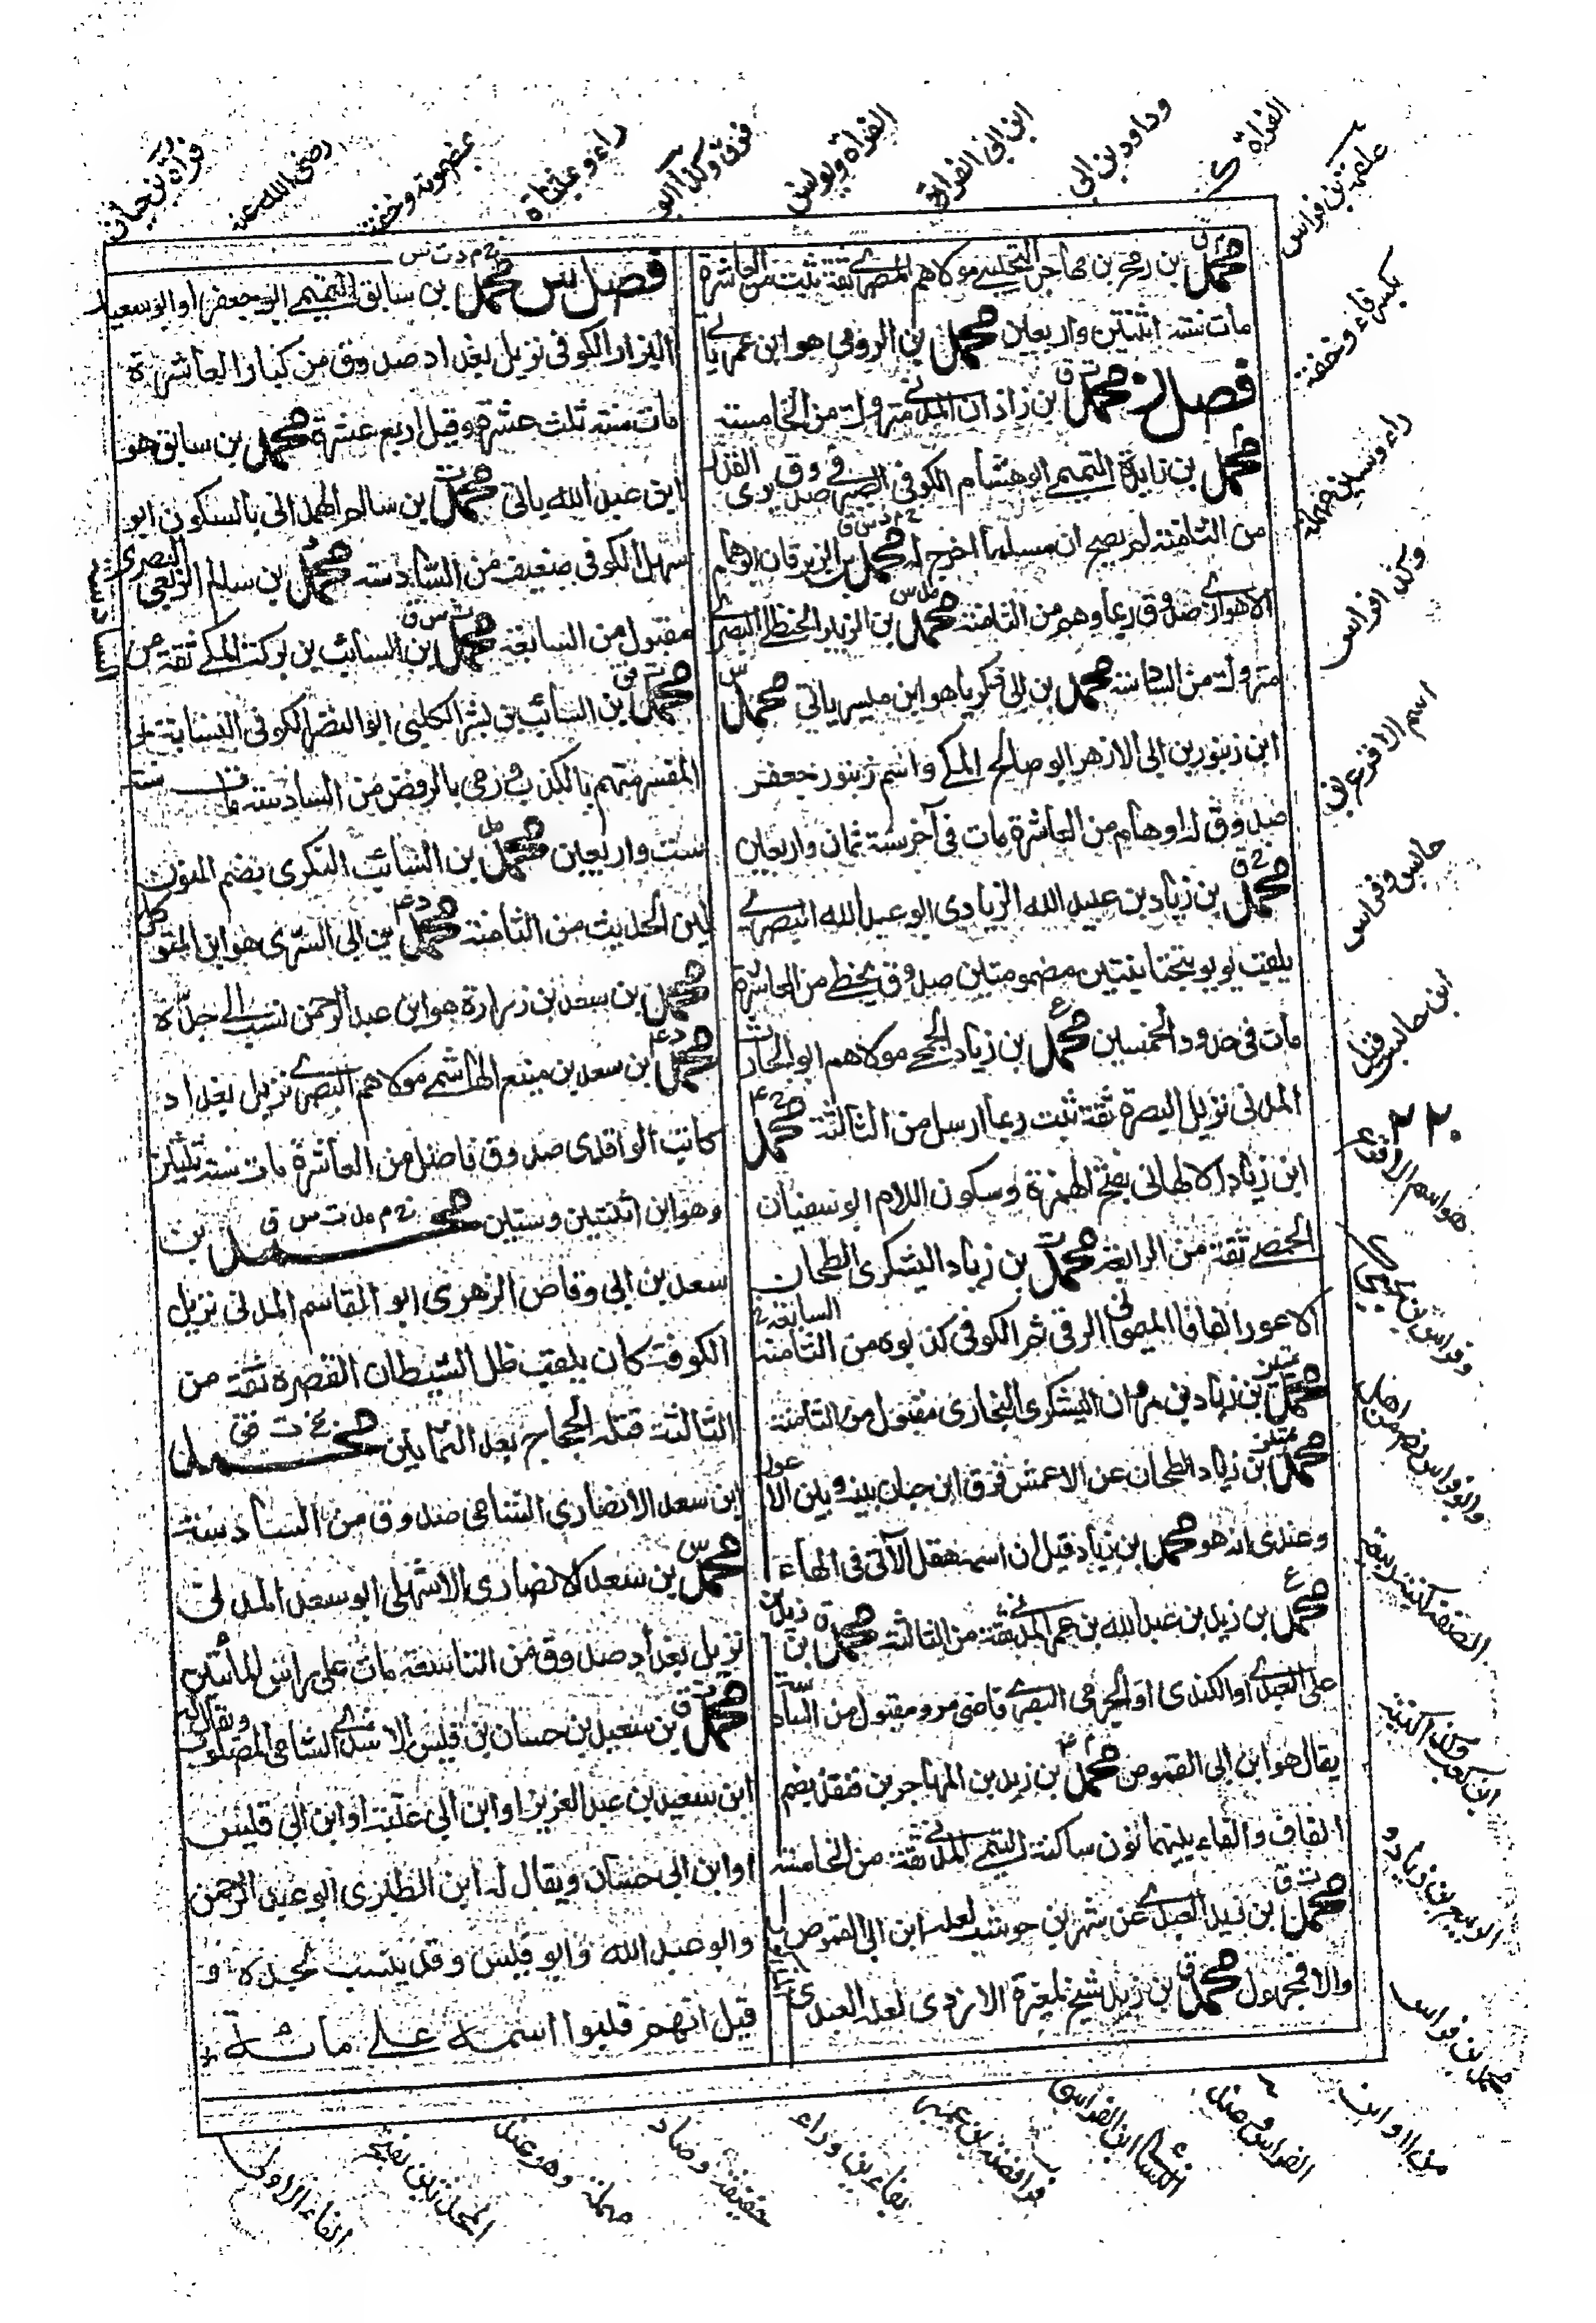 محمد بن رمح بن مهاجر التجيبي مولاهم المصري ثقة ثبت من العاشرة
مات سنة اثنتين واربعين محمد بن الرومي هو ابن عمر ياتي
فصل ز محمد بن زاذان المدني متروك من الخامسة
محمد بن زايدة التميمي ابو هشام الكوفي الصيرفي صدوق رمي القدر
من الثامنة لم يصح ان مسلما اخرج له محمد بن الزبرقان ابو همام
الاهوازي صدوق ربما وهم من الثامنة محمد بن الزبير الحنظلي البصري
متروك من السادسة محمد بن ابي زكريا هو ابن ميسر ياتي محمد
ابن زنبور بن ابي الازهر ابو صالح المكي واسم زنبور جعفر
صدوق له اوهام من العاشرة مات في آخر سنة ثمان واربعين
محمد بن زياد بن عبيد الله الزيادي ابو عبد الله البصري
يلقب يويو بتحتانيتين مضمومتين صدوق يخطي من العاشرة
مات في حدود الخمسين محمد بن زياد الجمحي مولاهم ابو الحارث
المدني نزيل البصرة ثقة ثبت ربما ارسل من الثالثة محمد
ابن زياد الالهاني بفتح الهمزة وسكون اللام ابو سفيان
الحمصي ثقة من الرابعة محمد بن زياد اليشكري الطحان
الاعور الفافا الميموني الرقي ثم الكوفي كذبوه من الثامنة
محمد بن زياد بن مروان اليشكري البخاري مقبول من الثامنة
محمد بن زياد الطحان عن الاعمش فرق ابن حبان بينه وبين الاعور
وعندي انه هو محمد بن زياد قيل ان اسمه هقل الآتي في الهاء
محمد بن زيد بن عبد الله بن عمر المدني ثقة من الثالثة محمد بن زيد بن
علي العبدي او الكندي او الجرمي البصري قاضي مرو مقبول من السادسة
يقال هو ابن ابي القموص محمد بن زيد بن المهاجر بن قنفذ بضم
القاف والفاء بينهما نون ساكنة التيمي المدني ثقة من الخامسة
محمد بن زيد العبدي عن شهر بن حوشب لعله ابن ابي القموص
والا فمجهول محمد بن زيد شيخ لمغيرة الازدي لعله العبدي
فصل س محمد بن سابق التميمي ابو جعفر او ابو سعيد
البزار الكوفي نزيل بغداد صدوق من كبار العاشرة
مات سنة ثلث عشرة وقيل اربع عشرة محمد بن سابق هو
ابن عبد الله ياتي محمد بن سالم الهمداني بالسكون ابو
سهل الكوفي ضعيف من السادسة محمد بن سالم الربعي البصري
مقبول من السابعة محمد بن السائب بن بركة المكي ثقة من السادسة
محمد بن السائب بن بشر الكلبي ابو النضر الكوفي النسابة
المفسر متهم بالكذب ورمي بالرفض من السادسة مات سنة
ست واربعين محمد بن السائب النكري بضم النون
لين الحديث من الثامنة محمد بن ابي السري هو ابن المتوكل
محمد بن سعد بن زرارة هو ابن عبد الرحمن نسب الى جده
محمد بن سعد بن منيع الهاشمي مولاهم البصري نزيل بغداد
كاتب الواقدي صدوق فاضل من العاشرة مات سنة ثلثين
وهو ابن اثنتين وستين محمد بن
سعد بن ابي وقاص الزهري ابو القاسم المدني نزيل
الكوفة كان يلقب ظل الشيطان لقصره ثقة من
الثالثة قتله الحجاج بعد الثمانين محمد
ابن سعد الانصاري الشامي صدوق من السادسة
محمد بن سعد الانصاري الاشهلي ابو سعد المدني
نزيل بغداد صدوق من التاسعة مات على راس المأتين
محمد بن سعيد بن حسان بن قيس الاسدي الشامي المصلوب ويقال له
ابن سعيد بن عبد العزيز او ابن ابي عتبة او ابن ابي قيس
او ابن ابي حسان ويقال له ابن الطبري ابو عبد الرحمن
وابو عبد الله وابو قيس وقد ينسب لجده و
قيل انهم قلبوا اسمه على مائة
فرات بن حبان
رضي الله عنه
الفراة ويونس
ابن ابي الفرات
وداود بن ابي
الفراة
علقمة بن فراس
بكسر فاء وخفة
راء وسين مهملة
وكذا فراس
اسم الاقرع بن
حابس وفراس
ابن حابس قيل
هو اسم الاقرع
٢٢٠
محمد بن فراس